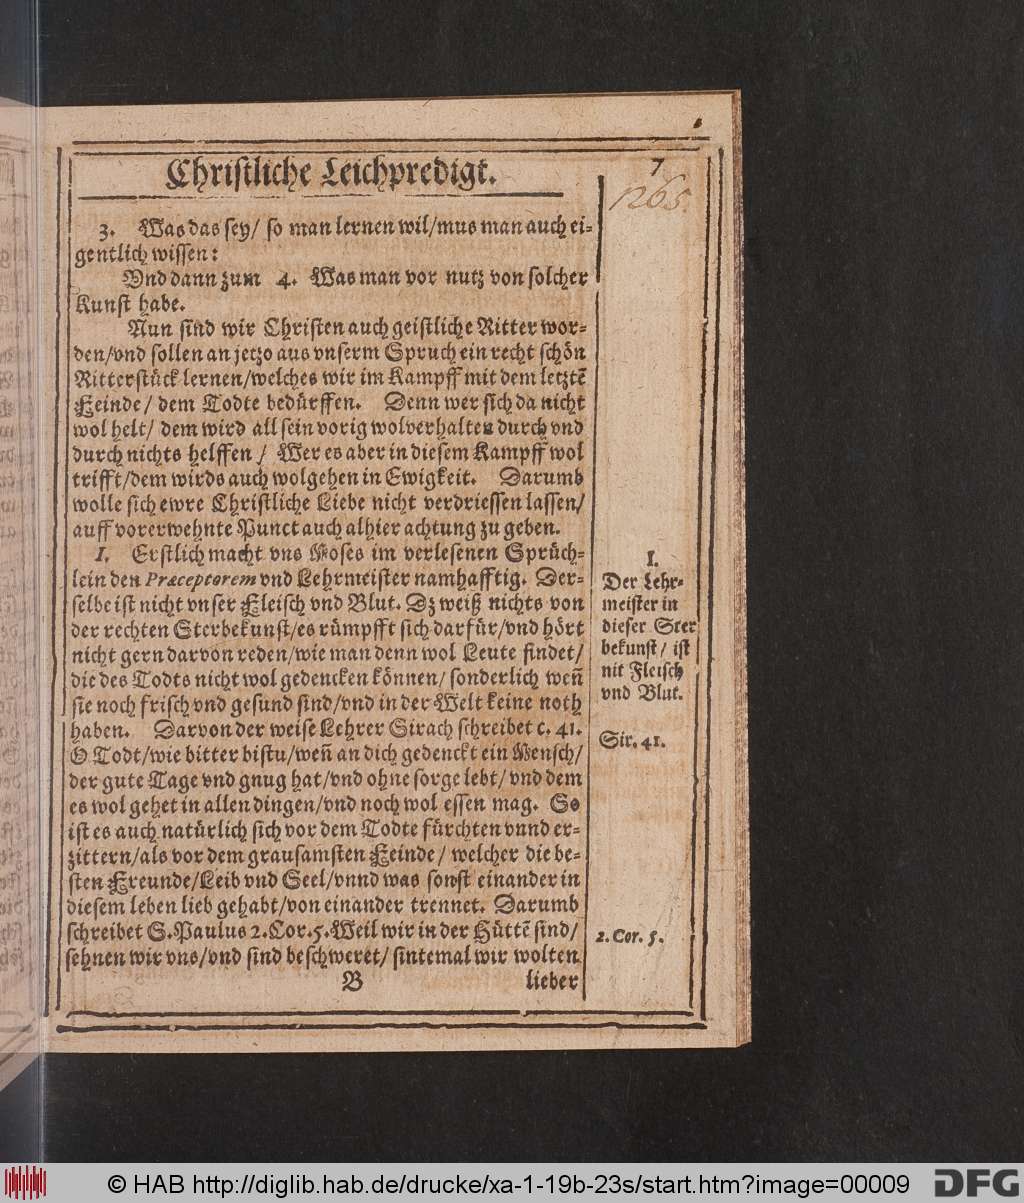 Christliche Leichpredigt.
7
1265.
3. Was das sey/ so man lernen wil/mus man auch ei-
gentlich wissen:
Vnd dann zum 4. Was man vor nutz von solcher
Kunst habe.
Nun sind wir Christen auch geistliche Ritter wor-
den/vnd sollen an jetzo aus vnserm Spruch ein recht schön
Ritterstück lernen/welches wir im Kampff mit dem letztē
Feinde/ dem Todte bedürffen. Denn wer sich da nicht
wol helt/ dem wird all sein vorig wolverhalten durch vnd
durch nichts helffen/ Wer es aber in diesem Kampff wol
trifft/dem wirds auch wolgehen in Ewigkeit. Darumb
wolle sich ewre Christliche Liebe nicht verdriessen lassen/
auff vorerwehnte Punct auch alhier achtung zu geben.
I. Erstlich macht vns Moses im verlesenen Sprüch-
lein den Præceptorem vnd Lehrmeister namhafftig. Der-
selbe ist nicht vnser Fleisch vnd Blut. Dz weiß nichts von
der rechten Sterbekunst/es rümpfft sich darfür/vnd hört
nicht gern darvon reden/wie man denn wol Leute findet/
die des Todts nicht wol gedencken können/ sonderlich weñ
sie noch frisch vnd gesund sind/vnd in der Welt keine noth
haben. Darvon der weise Lehrer Sirach schreibet c. 41.
O Todt/wie bitter bistu/weñ an dich gedenckt ein Mensch/
der gute Tage vnd gnug hat/vnd ohne sorge lebt/ vnd dem
es wol gehet in allen dingen/vnd noch wol essen mag. So
ist es auch natürlich sich vor dem Todte fürchten vnnd er-
zittern/als vor dem grausamsten Feinde/ welcher die be-
sten Freunde/Leib vnd Seel/vnnd was sonst einander in
diesem leben lieb gehabt/von einander trennet. Darumb
schreibet S. Paulus 2. Cor. 5. Weil wir in der Hüttē sind/
sehnen wir vns/vnd sind beschweret/ sintemal wir wolten
B lieber
I.
Der Lehr-
meister in
dieser Ster
bekunst/ ist
nit Fleisch
vnd Blut.
Sir. 41.
2. Cor. 5.
© HAB http://diglib.hab.de/drucke/xa-1-19b-23s/start.htm?image=00009
DFG